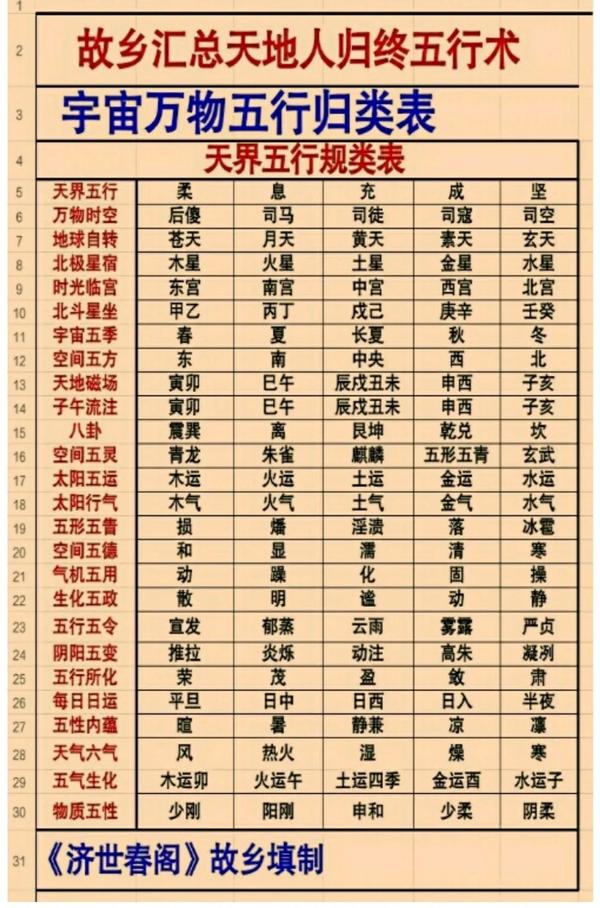 1
2 故乡汇总天地人归终五行术
3 宇宙万物五行归类表
4 天界五行规类表
5 天界五行 柔 息 充 成 坚
6 万物时空 后傻 司马 司徒 司寇 司空
7 地球自转 苍天 月天 黄天 素天 玄天
8 北极星宿 木星 火星 土星 金星 水星
9 时光临宫 东宫 南宫 中宫 西宫 北宫
10 北斗星坐 甲乙 丙丁 戊己 庚辛 壬癸
11 宇宙五季 春 夏 长夏 秋 冬
12 空间五方 东 南 中央 西 北
13 天地磁场 寅卯 巳午 辰戌丑未 申西 子亥
14 子午流注 寅卯 巳午 辰戌丑未 申西 子亥
15 八卦 震巽 离 艮坤 乾兑 坎
16 空间五灵 青龙 朱雀 麒麟 五形五青 玄武
17 太阳五运 木运 火运 土运 金运 水运
18 太阳行气 木气 火气 土气 金气 水气
19 五形五眚 损 燔 淫溃 落 冰雹
20 空间五德 和 显 濡 清 寒
21 气机五用 动 躁 化 固 操
22 生化五政 散 明 谧 动 静
23 五行五令 宣发 郁蒸 云雨 雾露 严贞
24 阴阳五变 推拉 炎烁 动注 高朱 凝冽
25 五行所化 荣 茂 盈 敛 肃
26 每日日运 平旦 日中 日西 日入 半夜
27 五性内蕴 暄 暑 静兼 凉 凛
28 天气六气 风 热火 湿 燥 寒
29 五气生化 木运卯 火运午 土运四季 金运酉 水运子
30 物质五性 少刚 阳刚 申和 少柔 阴柔
31 《济世春阁》故乡填制